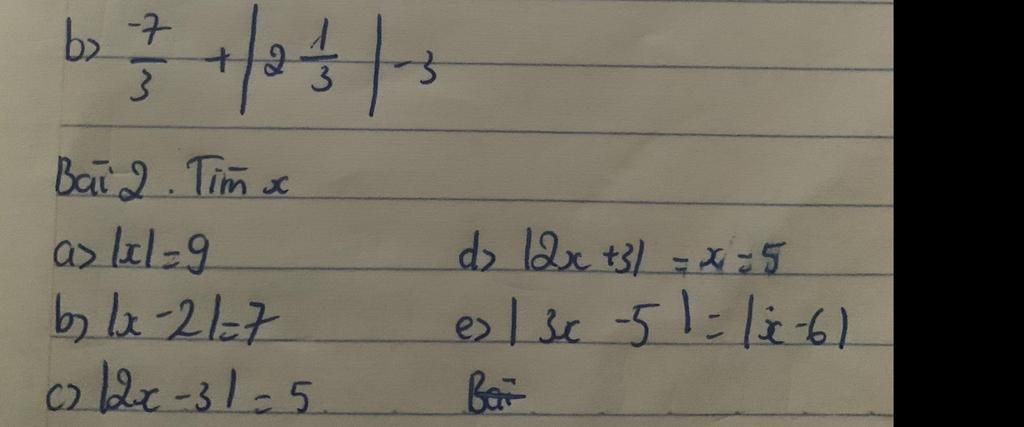 b) -7/3 + |2 1/3| - 3
Bài 2. Tìm x
a) |x| = 9
d) |2x + 3| = x = 5
b) |x - 2| = 7
e) |3x - 5| = |x - 6|
c) |2x - 3| = 5
Bài